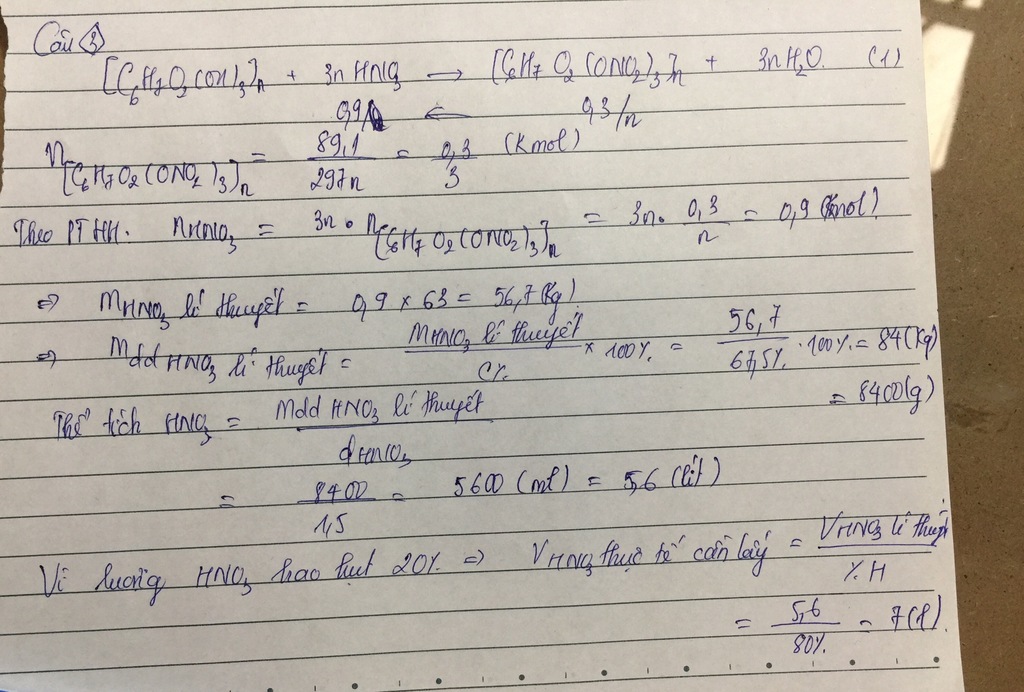 Câu 3
[C6H7O2(OH)3]n + 3n HNO3 → [C6H7O2(ONO2)3]n + 3nH2O. (1)
0,9 ← 0,3/n
n[C6H7O2(ONO2)3]n = 89,1/297n = 0,3/3 (Kmol)
Theo PTHH: nHNO3 = 3n . n[C6H7O2(ONO2)3]n = 3n . 0,3/n = 0,9 (Kmol)
=> MHNO3 lí thuyết = 0,9 × 63 = 56,7 (Kg)
=> Mdd HNO3 lí thuyết = MHNO3 lí thuyết/C% × 100% = 56,7/67,5% . 100% = 84 (Kg)
= 8400(g)
Thể tích HNO3 = Mdd HNO3 lí thuyết/dHNO3
= 8400/1,5 = 5600 (ml) = 5,6 (lít)
Vì lượng HNO3 hao hụt 20% => VHNO3 thực tế cần lấy = VHNO3 lí thuyết/%H
= 5,6/80% = 7(l).